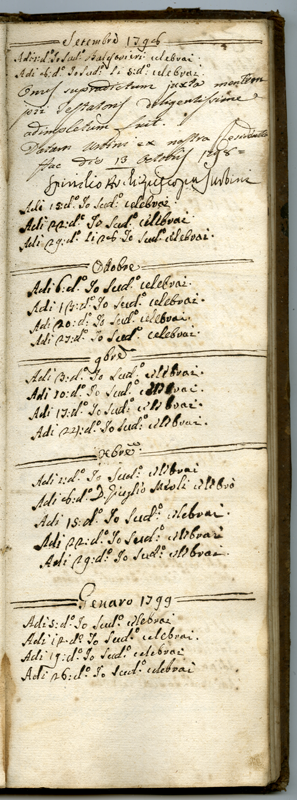 Settembre 1798
Adi 1: d.º Io Sud.º Baldeschi celebrai
Adi 6: d.º Io Sud.º Li 8: d.º celebrai
Onus supradictum juxta mentem
pii Testatoris diligentissime
adimpletum fuit.
Datum Urbini ex nostra
Hac die 13 Octobris 1798
Adi 15: d.º Io Sud.º celebrai
Adi 22: d.º Io Sud.º celebrai
Adi 29: d. Li 26 Io Sud.º celebrai.
Ottobre
Adi 6: d.º Io Sud.º celebrai.
Adi 13: d.º Io Sud.º celebrai.
Adi 20: d.º Io Sud.º celebrai
Adi 27: d.º Io Sud.º celebrai.
9bre
Adi 3: d.º Io Sud.º celebrai.
Adi 10: d.º Io Sud.º celebrai.
Adi 17: d.º Io Sud.º celebrai.
Adi 24: d.º Io Sud.º celebrai.
Xbre
Adi 1: d.º Io Sud.º celebrai
Adi 6: d.º D. Giuglio Meoli celebrò
Adi 15: d.º Io Sud.º celebrai.
Adi 22: d.º Io Sud.º celebrai
Adi 29: d.º Io Sud.º celebrai
Genaro 1799
Adi 5: d.º Io Sud.º celebrai
Adi 12: d.º Io Sud.º celebrai.
Adi 19: d.º Io Sud.º celebrai
Adi 26: d.º Io Sud.º celebrai